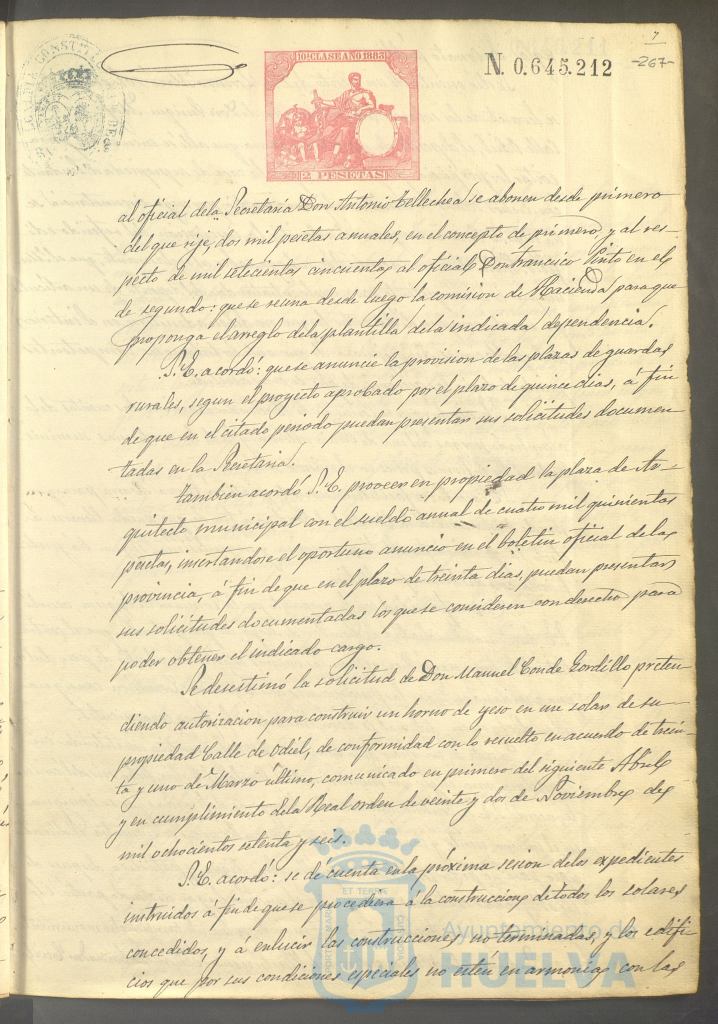 7
10ª CLASE AÑO 1883
N. 0.645.212
-267-
2 PESETAS
al oficial dela Secretaría Don Antonio Tellechea se abonen desde primero
del que rije, dos mil pesetas anuales, en el concepto de primero, y al res-
pecto de mil setecientas cincuenta, al oficial Don Francisco Pinto en el
de segundo: que se reuna desde luego la comision de Hacienda para que
proponga el arreglo dela plantilla dela indicada dependencia.
S. E. acordó: que se anuncie la provision de las plazas de guardas
rurales, segun el proyecto aprobado por el plazo de quince dias, á fin
de que en el citado periodo puedan presentar sus solicitudes documen-
tadas en la Secretaria.
Tambien acordó S. E. proveer en propiedad la plaza de Ar-
quitecto municipal con el sueldo anual de cuatro mil quinientas
pesetas, insertandose el oportuno anuncio en el boletin oficial de la
provincia, á fin de que en el plazo de treinta dias, puedan presentar
sus solicitudes documentadas los que se consideren con derecho para
poder obtener el indicado cargo.
Se desestimó la solicitud de Don Manuel Conde Gordillo preten-
diendo autorizacion para construir un horno de yeso en un solar de su
propiedad Calle de Odiel, de conformidad con lo resuelto en acuerdo de trein-
ta y uno de Marzo último, comunicado en primero del siguiente Abril
y en cumplimiento dela Real orden de veinte y dos de Noviembre de
mil ochocientos setenta y seis.
S. E. acordó: se dé cuenta en la próxima sesion delos expedientes
instruidos á fin de que se procediera á la construccion de todos los solares
concedidos, y á enlucir las construcciones no terminadas, y los edifi-
cios que por sus condiciones especiales no estén en armonia con las
Ayuntamiento de
HUELVA